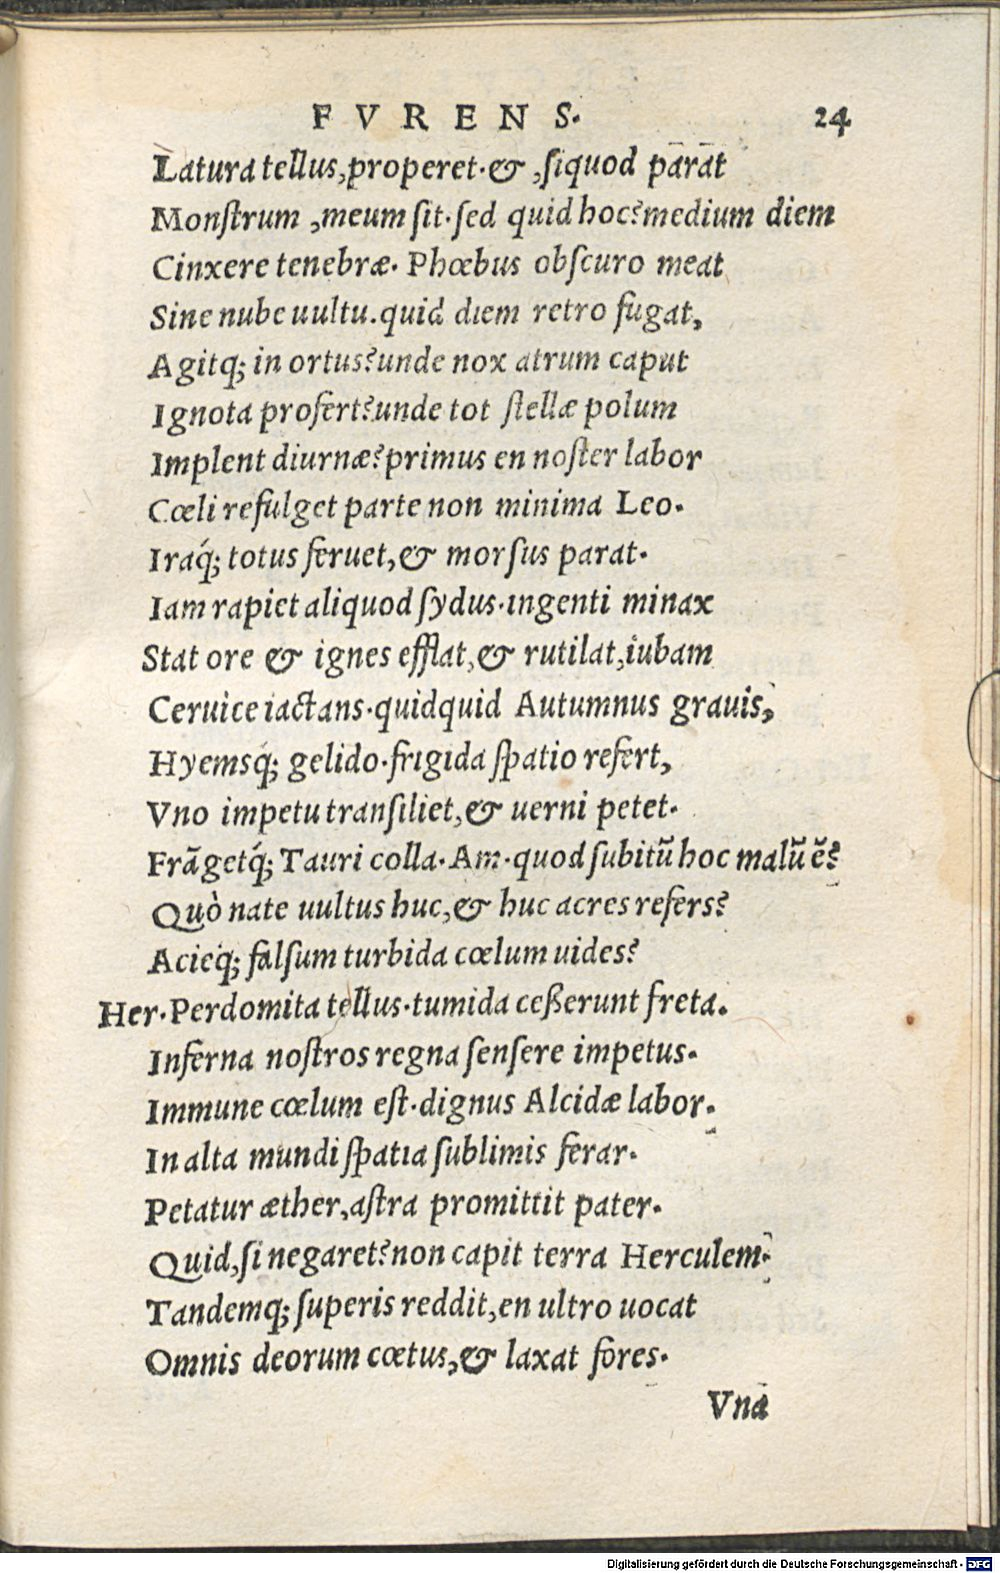 FVRENS. 24
Latura tellus, properet. & , siquod parat
Monſtrum , meum ſit. ſed quid hoc? medium diem
Cinxere tenebræ. Phœbus obſcuro meat
Sine nube uultu. quid diem retro fugat,
Agitq; in ortus? unde nox atrum caput
Ignota profert? unde tot ſtellæ polum
Implent diurnæ? primus en noſter labor
Cœli refulget parte non minima Leo.
Iraq́; totus feruet, & morſus parat.
Iam rapiet aliquod ſydus. ingenti minax
Stat ore & ignes efflat, & rutilat, iubam
Ceruice iactans. quidquid Autumnus grauis,
Hyemsq́; gelido. frigida ſpatio refert,
Vno impetu tranſiliet, & uerni petet.
Frãgetq́; Tauri colla. Am. quod ſubitũ hoc malũ ẽ?
Quò nate uultus huc, & huc acres refers?
Acieq́; falſum turbida cœlum uides?
Her. Perdomita tellus. tumida ceßerunt freta.
Inferna noſtros regna ſenſere impetus.
Immune cœlum eſt. dignus Alcidæ labor.
In alta mundi ſpatia ſublimis ferar.
Petatur æther, aſtra promittit pater.
Quid, ſi negaret? non capit terra Herculem.
Tandemq; ſuperis reddit, en ultro uocat
Omnis deorum cœtus, & laxat fores.
Vna
Digitalisierung gefördert durch die Deutsche Forschungsgemeinschaft - DFG